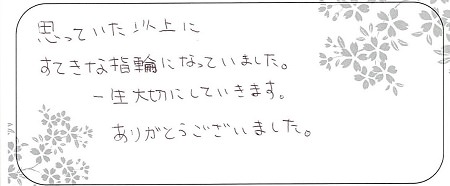 思っていた以上に
すてきな指輪になっていました。
一生大切にしていきます。
ありがとうございました。